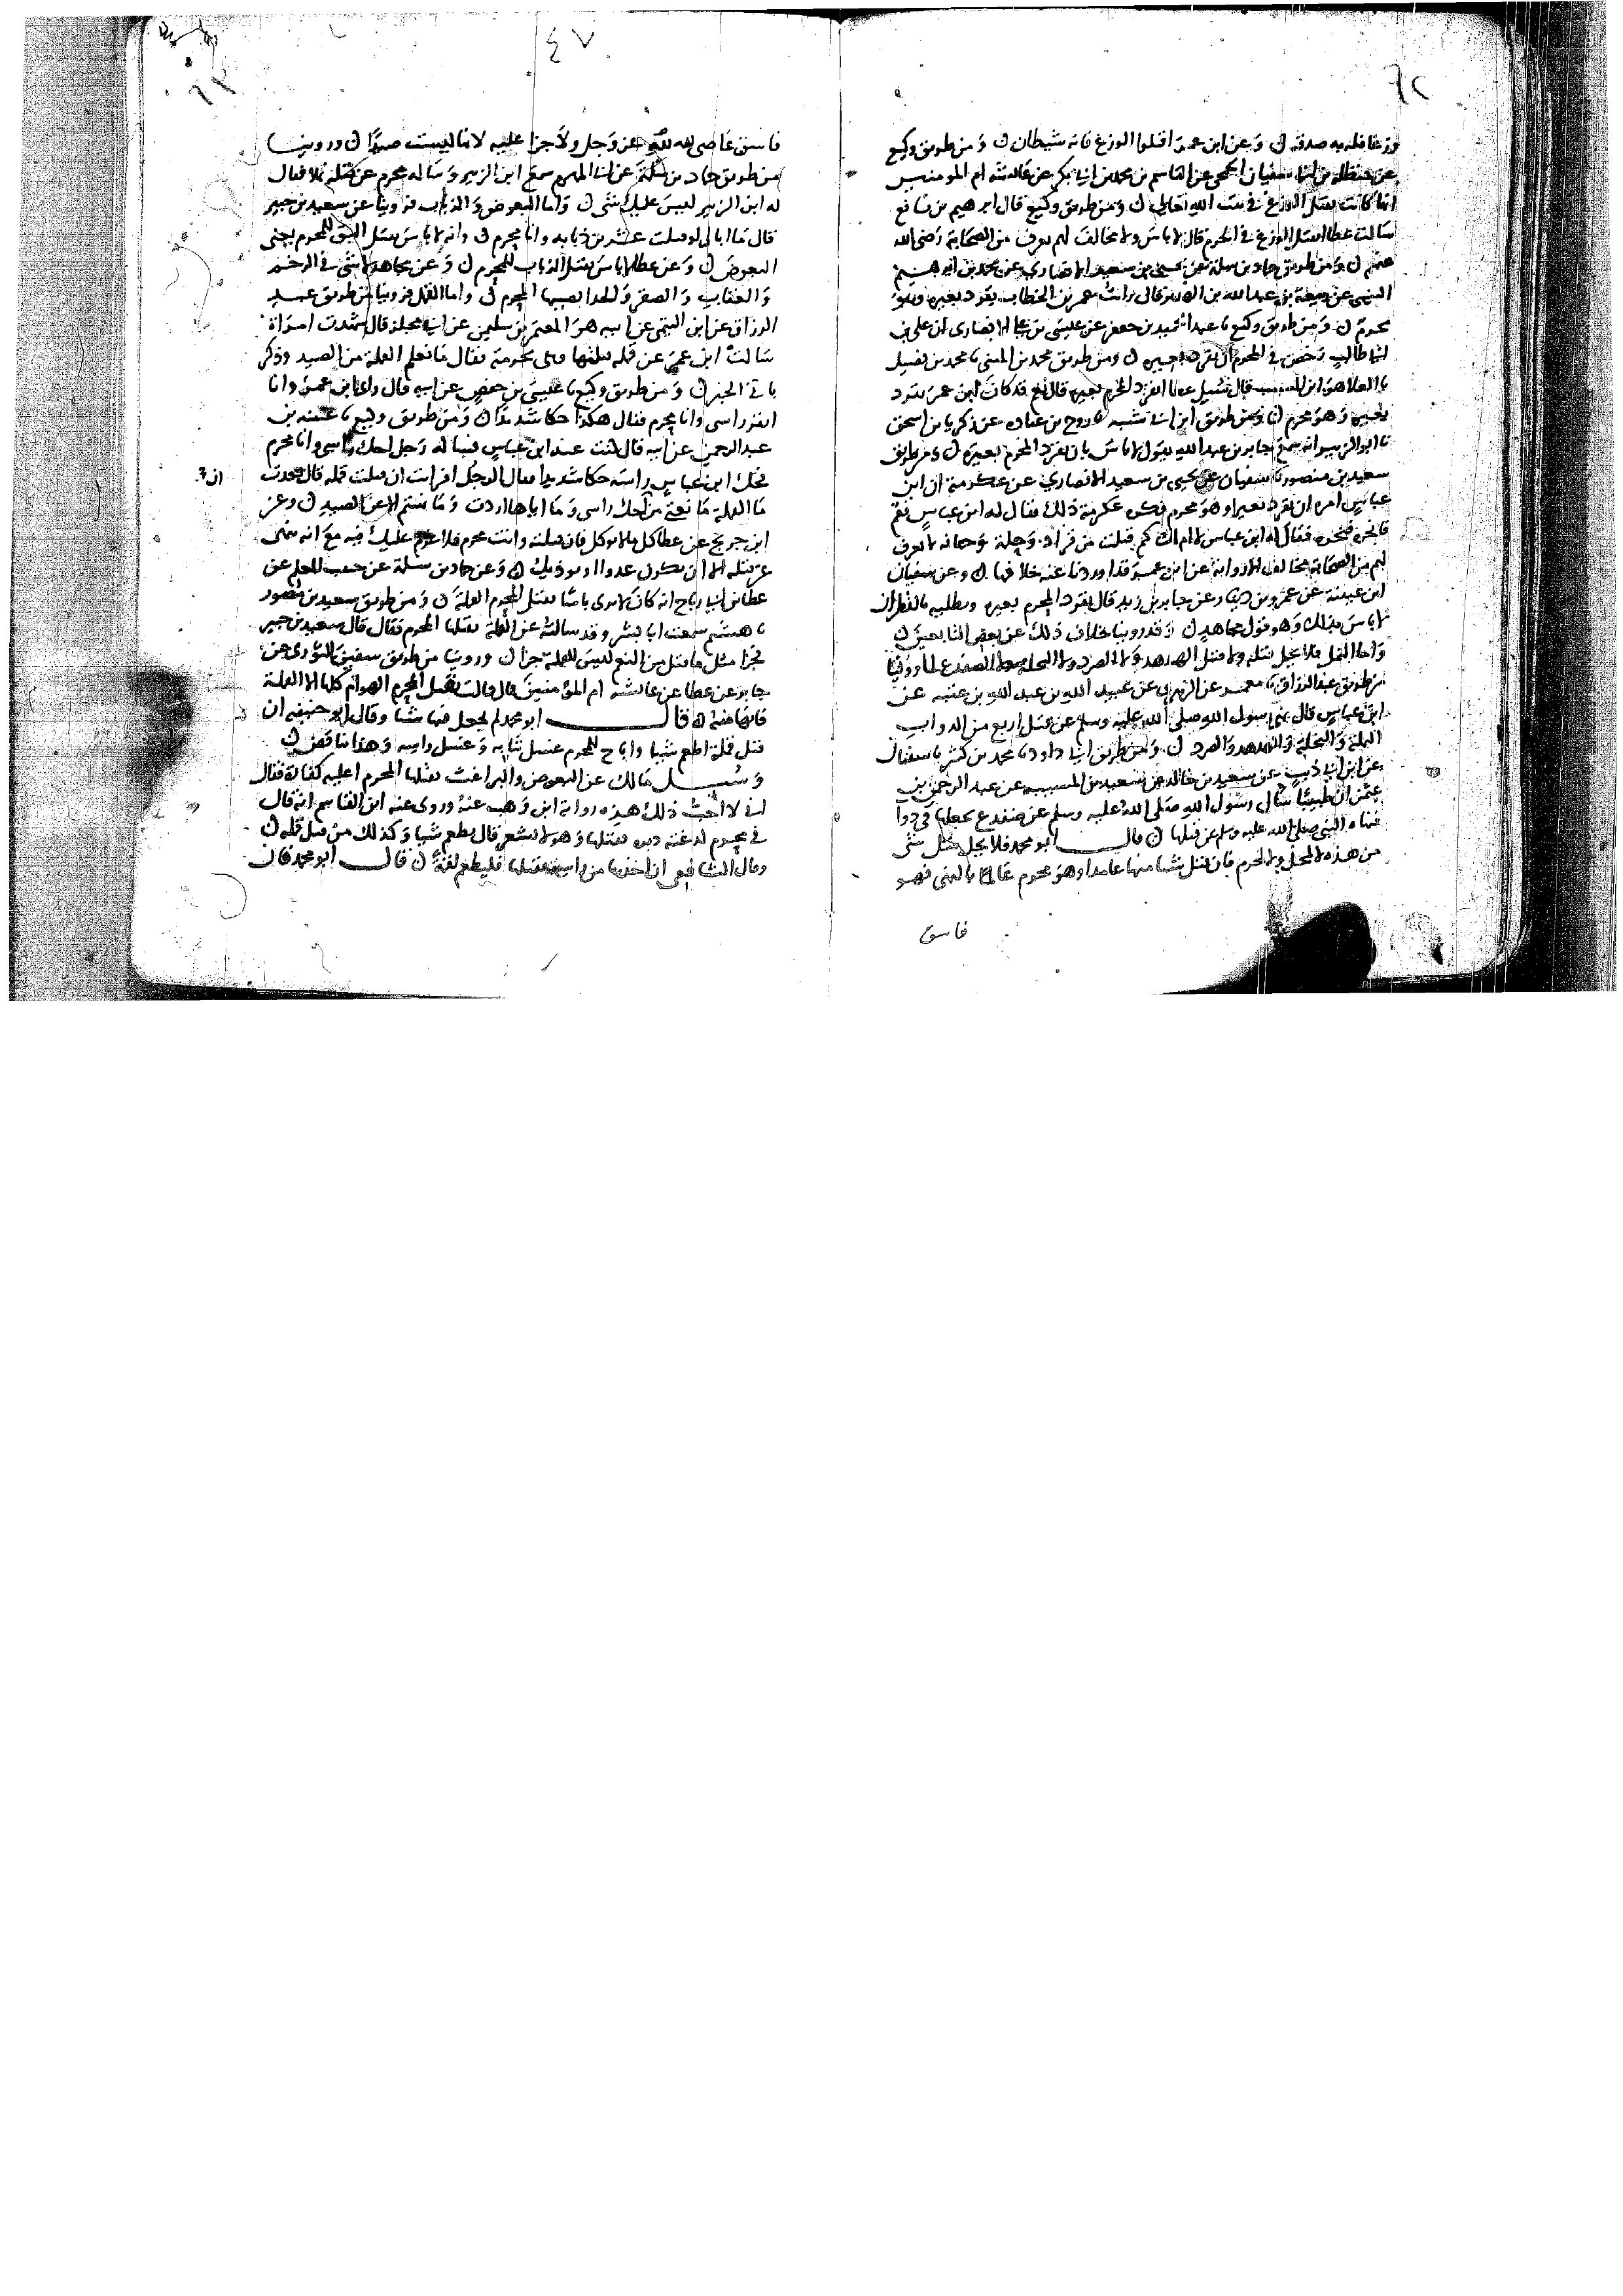 ٦٢
وزغا فله به صدقة ن وعن ابن عمر اقتلوا الوزغ فانه شيطان ن ومن طريق وكيع
عن حنظلة بن ابي سفيان الجمحي عن القاسم بن محمد بن ابي بكر عن عائشة ام المومنين
انها كانت تقتل الوزغ في بيت الله تعالى ن ومن طريق وكيع قال ابرهيم بن نافع
سالت عطا ايقتل الوزغ في الحرم قال لا باس ولا مخالف لهم يعرف من الصحابة رضي الله
عنهم ن ومن طريق حماد بن سلمة عن يحيى بن سعيد الانصاري عن محمد بن ابرهيم
التيمي عن ربيعة بن عبد الله بن الهدير قال رايت عمر بن الخطاب يقرد بعيره وهو
محرم ن ومن طريق وكيع نا عبد الحميد بن جعفر عن عيسى بن علي الانصاري ان علي بن
ابي طالب رخص في المحرم ان يقرد بعيره ن ومن طريق محمد بن المثنى نا محمد بن فضيل
نا العلا هو ابن المسيب قال سئل عطا ايقرد المحرم بعيره قال نعم قد كان ابن عمر يقرد
بعيره وهو محرم ن ومن طريق ابن ابي شيبه نا روح بن عباده عن زكريا بن اسحق
نا ابو الزبير انه سمع جابر بن عبد الله يقول لا باس بان يقرد المحرم بعيره ن ومن طريق
سعيد بن منصور نا سفيان عن يحيى بن سعيد الانصاري عن عكرمة ان ابن
عباس امره ان يقرد بعيرا وهو محرم فكره عكرمة ذلك فقال له ابن عباس فقم
فانحره فنحره فقال له ابن عباس لا ام لك كم قتلت من قراد وحلمة وحمنانه لا يعرف
لهم من الصحابة مخالف الا رواية عن ابن عمر قد اوردنا عنه خلافها ن وعن سفيان
ابن عيينة عن عمرو بن دينار عن جابر بن زيد قال يقرد المحرم بعيره ويطليه بالقطران
لا باس بذلك وهو قول مجاهد ن وقد روينا خلاف ذلك عن بعض التابعين ن
واما النمل فلا يحل قتله ولا قتل الهدهد ولا الصرد ولا النحل ولا الضفدع لما روينا
من طريق عبد الرزاق نا معمر عن الزهري عن عبيد الله بن عبد الله بن عتبه عن
ابن عباس قال نهى رسول الله صلى الله عليه وسلم عن قتل اربع من الدواب
النملة والنحلة والهدهد والصرد ن ومن طريق ابي داود نا محمد بن كثير نا سفيان
عن ابن ابي ذيب عن سعيد بن خالد عن سعيد بن المسيب عن عبد الرحمن بن
عثمن ان طبيبا سال رسول الله صلى الله عليه وسلم عن ضفدع يجعلها في دوا
فنهاه النبي صلى الله عليه وسلم عن قتلها ن قال ابو محمد فلا يحل قتل شي
من هذه لا لمحل ولا لمحرم فان قتل شيا منها عامدا وهو محرم عالما بالنهي فهو
فاسق
٤٧
فاسق عاصي لله عز وجل ولا جزا عليه لانها ليست صيدا ن وروينا
من طريق حماد بن سلمة عن ابي المهزم سمع ابن الزبير وساله محرم عن قتله نملا فقال
له ابن الزبير ليس عليك شي ن واما البعوض والذباب فروينا عن سعيد بن جبير
قال ما ابالي لو قتلت عشرين ذبابه وانا محرم ن وانه لا باس بقتل البق للمحرم يعني
البعوض ن وعن عطا لا باس بقتل الذباب للمحرم ن وعن مجاهد لا شي في الرخم
والعقاب والصقر والحدا يصيبها المحرم ن واما القمل فروينا من طريق عبد
الرزاق عن ابن التيمي عن ابيه هو المعتمر بن سليمن عن ابي مجلز قال شهدت امراة
سالت ابن عمر عن قملة قتلتها وهي محرمة فقال ما نعلم القملة من الصيد وذكر
باقي الخبر ن ومن طريق وكيع نا عيسى بن حفص عن ابيه قال راى ابن عمر وانا
انقر راسي وانا محرم فقال هكذا حكا شديدا ن ومن طريق وكيع نا عيينه بن
عبد الرحمن عن ابيه قال كنت عند ابن عباس فساله رجل احك راسي وانا محرم
فحك ابن عباس راسه حكا شديدا فقال الرجل افرايت ان قتلت قمله قال بعدت
ما القملة ما نعتي من احك راسي وما اياها اردت وما نهيتم الا عن الصيد ن وعن
ابن جريج عن عطا كل ما لا يوكل فان قتلته وانت محرم فلا غرم عليك فيه مع انه ينهى
عن قتله الا ان يكون عدوا او يوذيك ن وعن حماد بن سلمة عن حبيب المعلم عن
عطا بن ابي رباح انه كان لا يرى باسا بقتل المحرم القملة ن ومن طريق سعيد بن منصور
نا هشيم سمعت ابا بشر وقد سالته عن القملة يقتلها المحرم فقال قال سعيد بن جبير
فجزا مثل ما قتل من النعم ليس للقملة جزا ن وروينا من طريق سفين الثوري عن
جابر عن عطا عن عائشه ام المومنين قال قالت يقتل المحرم الهوام كلها الا القملة
فانها منه ه قال ابو محمد لم يجعل فيها شيا وقال ابو حنيفه ان
قتل قملة اطعم شيا واباح للمحرم غسل ثيابه وغسل راسه وهذا تناقض ن
وسئل مالك عن البعوض والبراغيث يقتلها المحرم اعليه كفارة فقال
اني لا احب ذلك هذه رواية ابن وهب عنه وروى عنه ابن القاسم انه قال
في محرم لدغته دبره فقتلها وهو لا يشعر قال يطعم شيا وكذلك من قتل قمله ن
وقال الشافعي ان اخذها من راسه فقتلها فليطعم لقمة ن قال ابو محمد فان